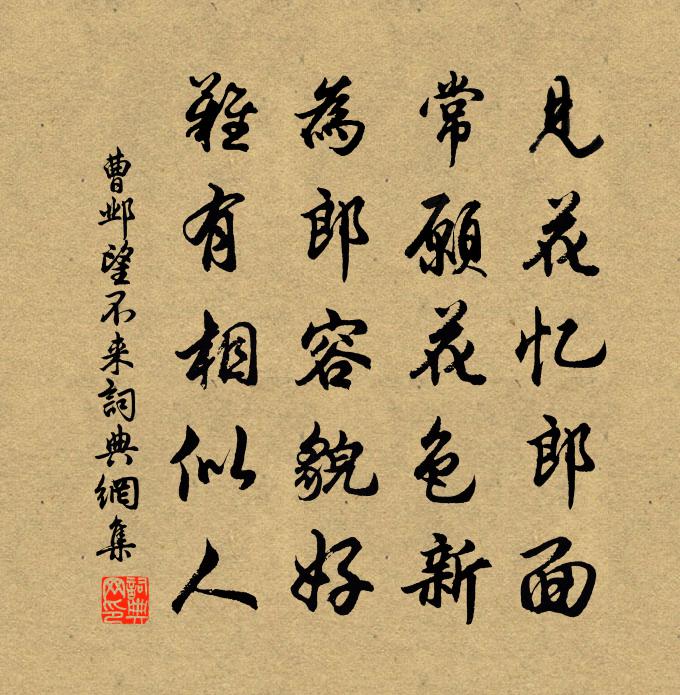 見花忆郎面
常願花色新
為郎容貌好
難有相似人
曹邺望不来詞典網集
詞典网印